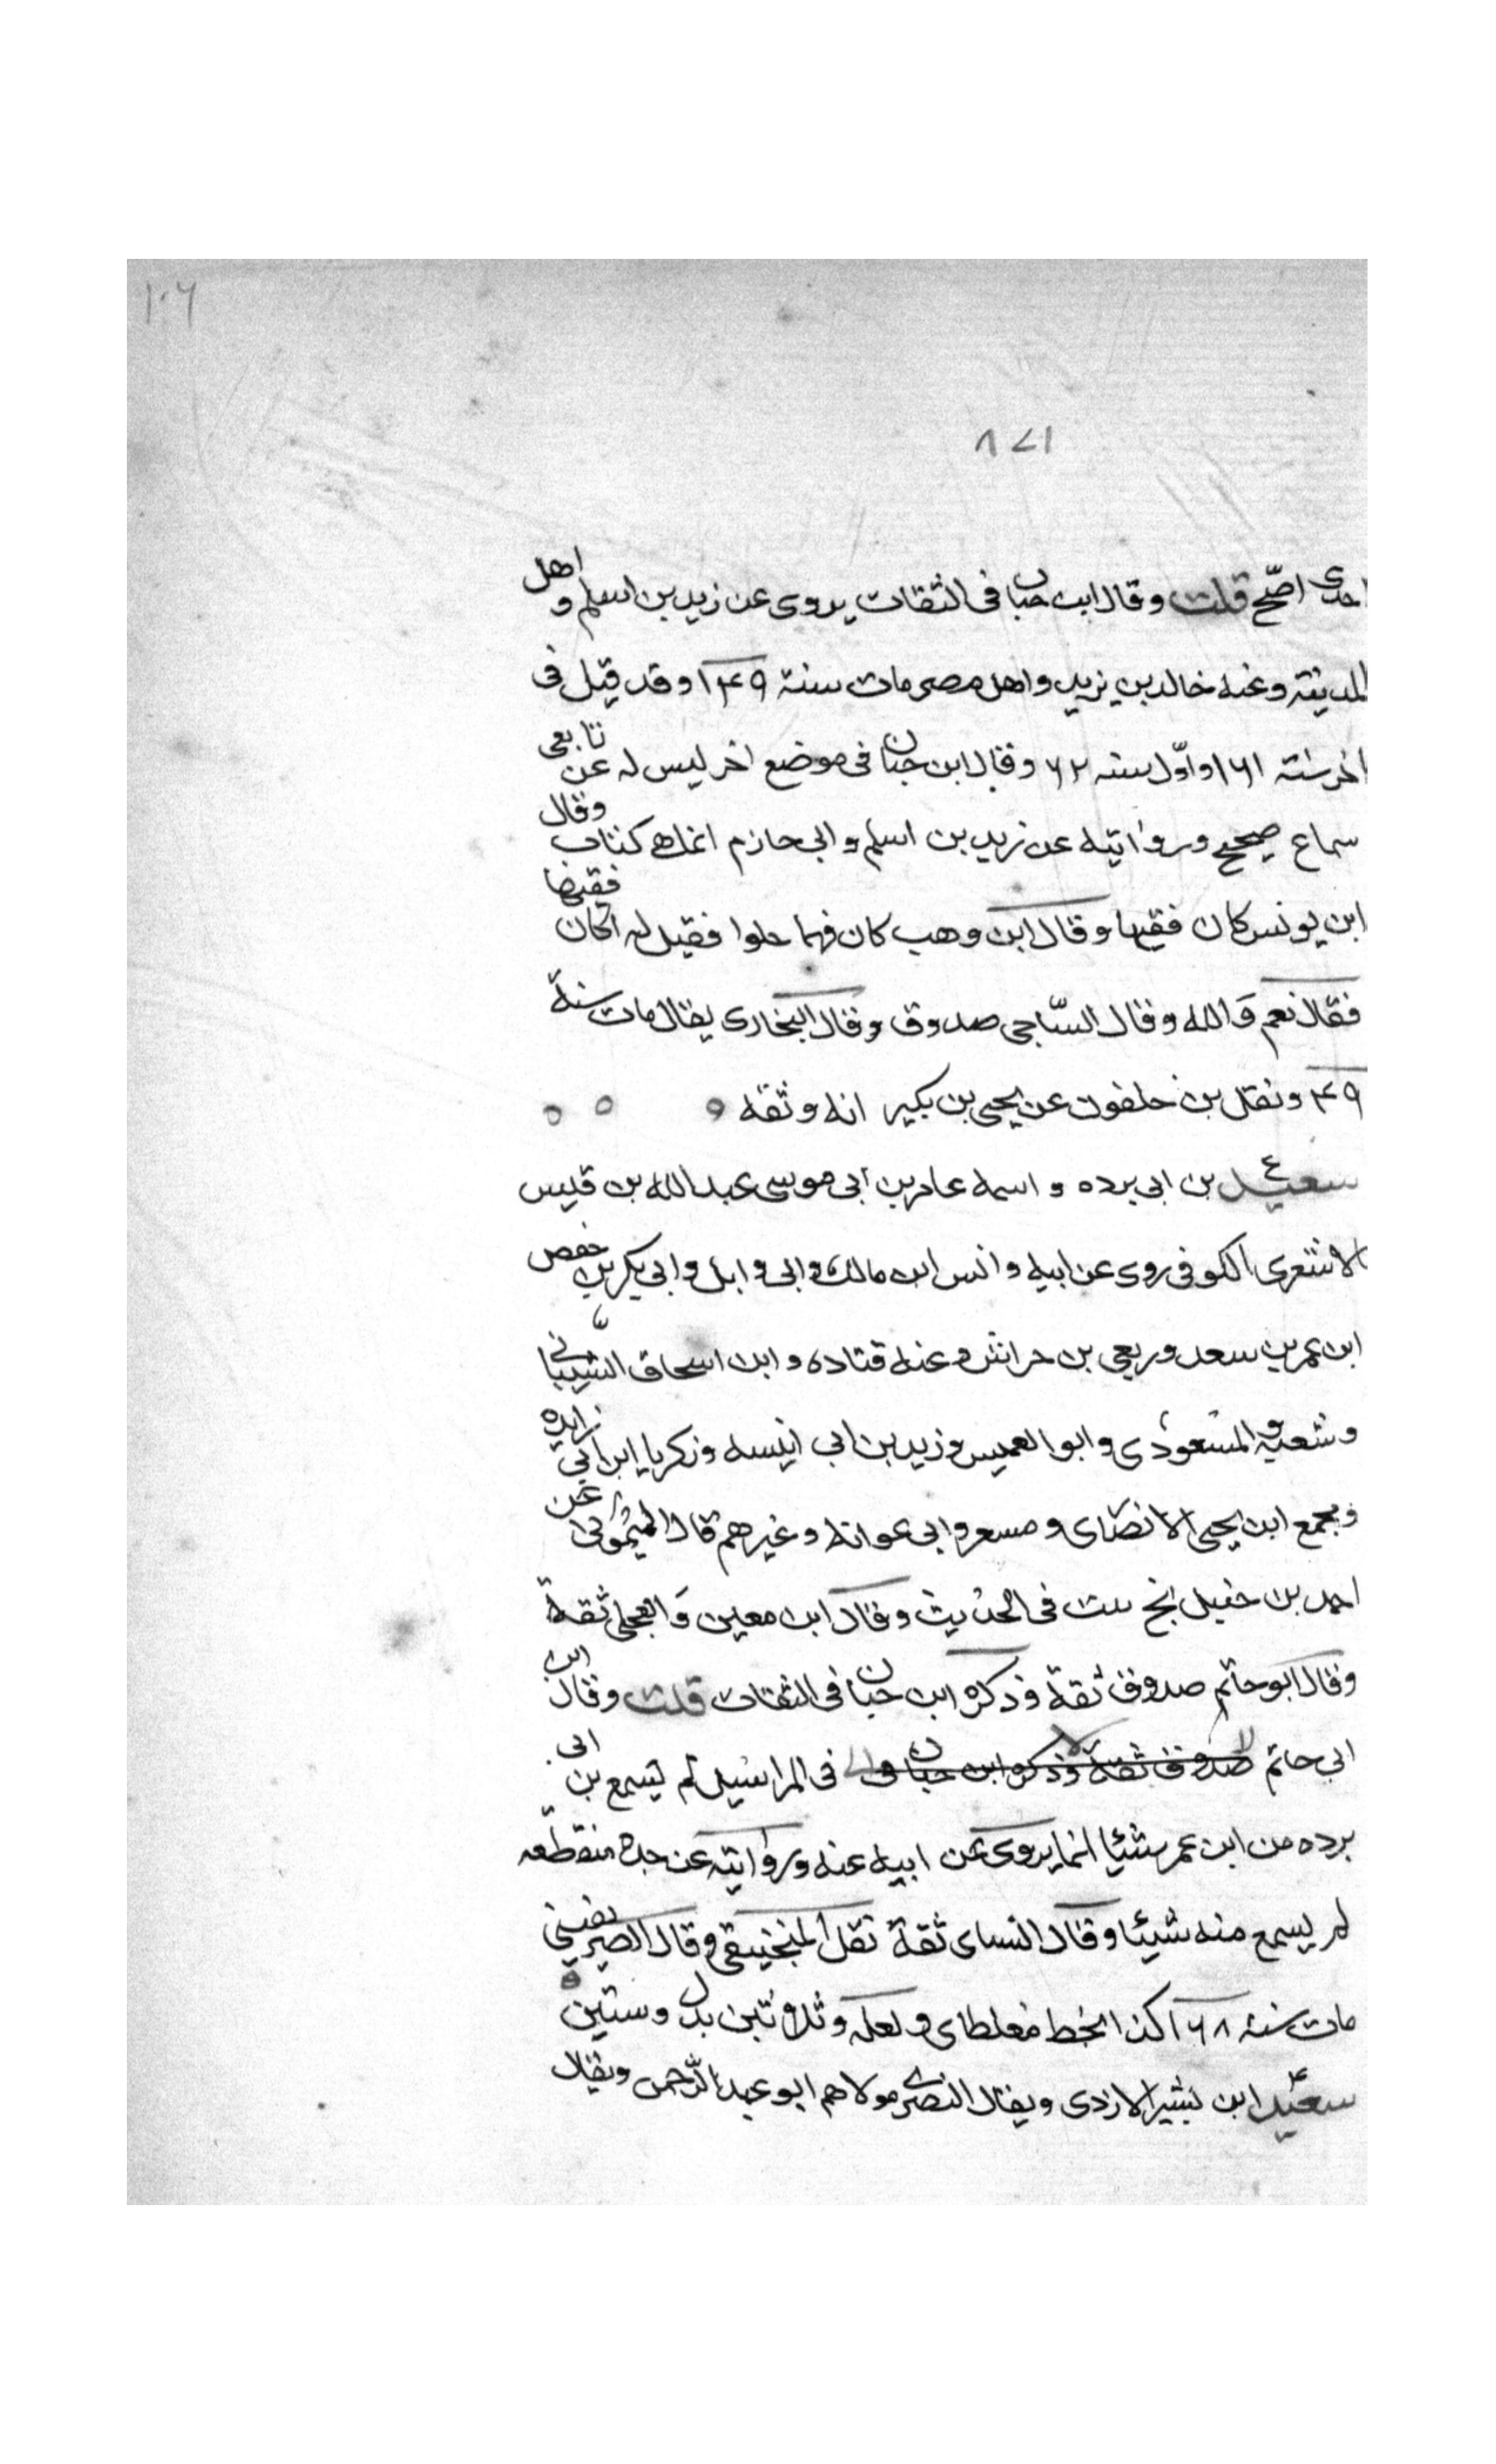 ١٠٦
٨٧١
احدى اصح قلت وقال ابن حبان فى الثقات يروى عن زيد بن اسلم و اهل
المدينة وعنه خالد بن يزيد واهل مصر مات سنة ١٤٩ وقد قيل فى
اخر سنة ١٦١ واول سنه ٦٢ وقال ابن حبان فى موضع اخر ليس له عن تابعى
سماع صحيح وروايته عن زيد بن اسلم وابى حازم انما هى كتاب وقال
ابن يونس كان فقيها وقال ابن وهب كان فهما حلوا فقيل له اكان فقيها
فقال نعم والله وقال الساجى صدوق وقال البخارى يقال مات سنة
١٤٩ ونقل بن خلفون عن يحيى بن بكير انه وثقه
سعيد ع بن ابى برده و اسمه عامر بن ابى موسى عبد الله بن قيس
الاشعرى الكوفى روى عن ابيه وانس ابن مالك وابى وايل وابى بكر بن حفص
ابن عمر بن سعد وربعى بن حراش وعنه قتاده وابن اسحاق الشيبانى
وشعبة والمسعودى وابو العميس وزيد بن ابى انيسه وزكريا ابن ابى زايده
ومجمع ابن يحيى الانصارى ومسعر وابى عوانه وغيرهم قال الميمونى عن
احمد بن حنبل بخ ثبت فى الحديث وقال ابن معين والعجلى ثقة
وقال ابو حاتم صدوق ثقة وذكره ابن حبان فى الثقات قلت وقال ابن
ابى حاتم صدوق ثقة وذكره ابن حبان فى فى المراسيل لم يسمع بن ابى
برده من ابن عمر شئيا انما يروى عن ابيه عنه وروايته عن جده منقطعه
لم يسمع منه شيئا وقال النساى ثقة نقل المنجنيقى وقال الصريفينى
مات سنة ١٦٨ كذا بخط مغلطاى ولعله وثلاثين بدل وستين
سعيد ابن بشير الازدى ويقال النصرى مولاهم ابو عبد الرحمن ويقال